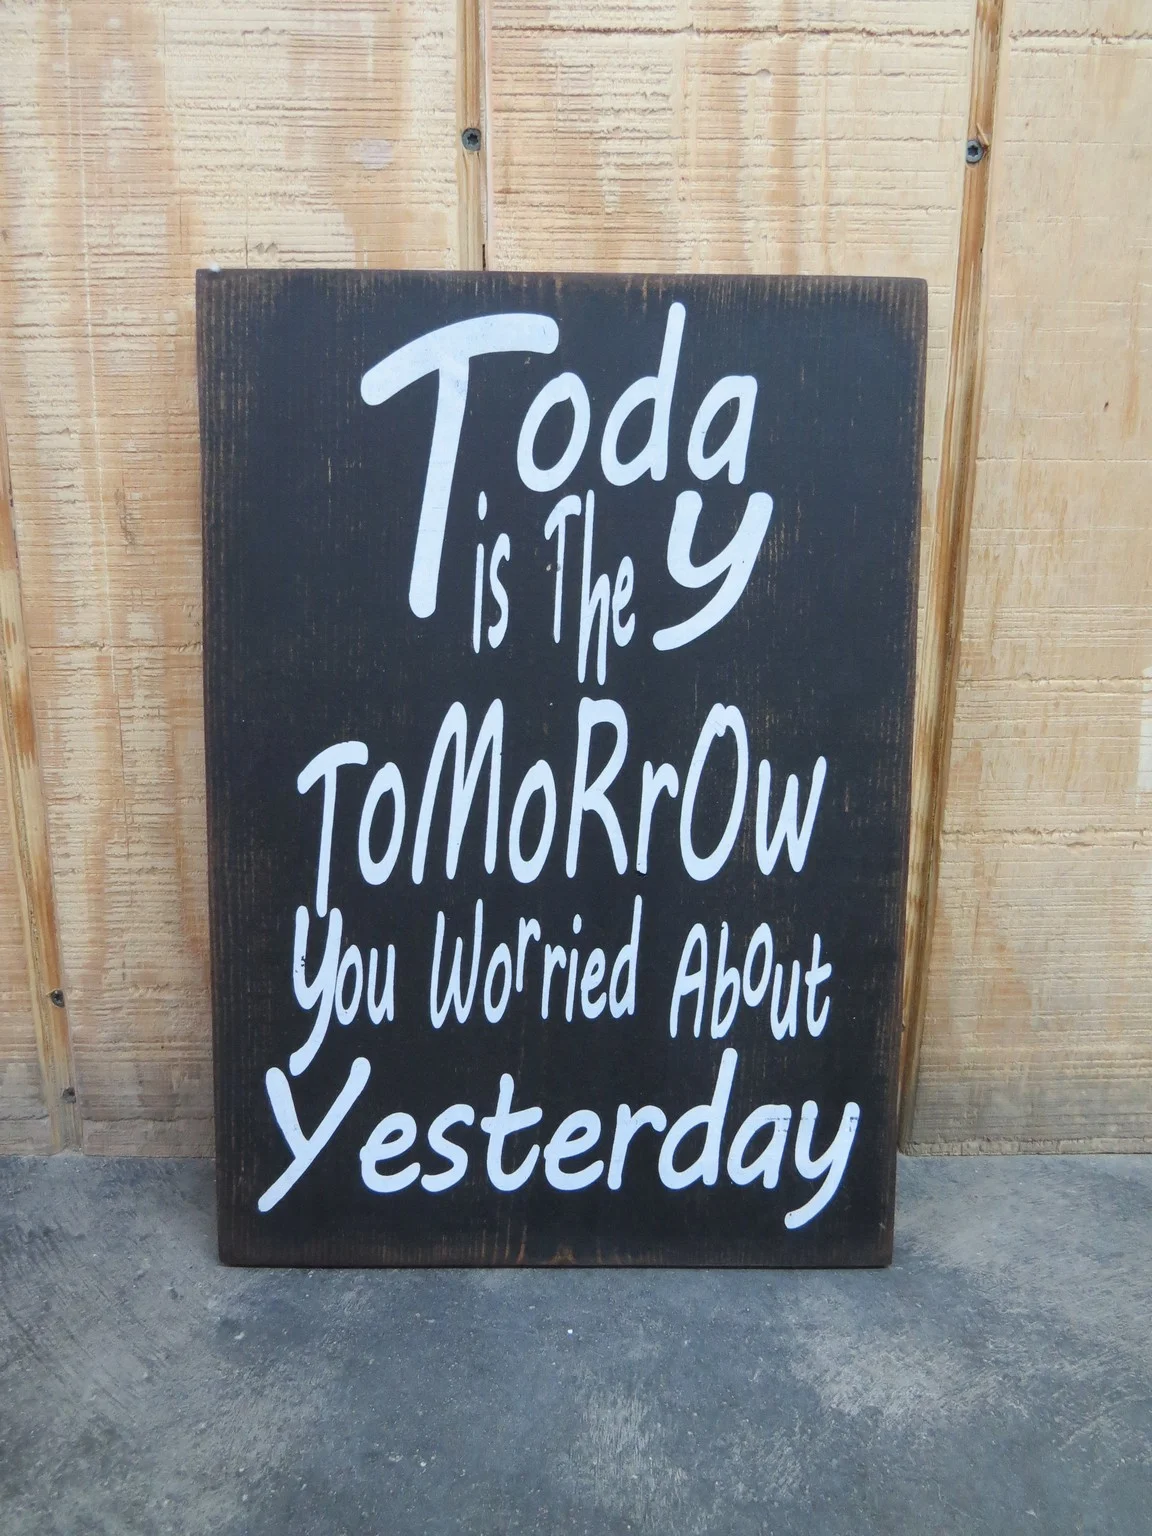 Today
is The
ToMoRrOw
You Worried About
Yesterday